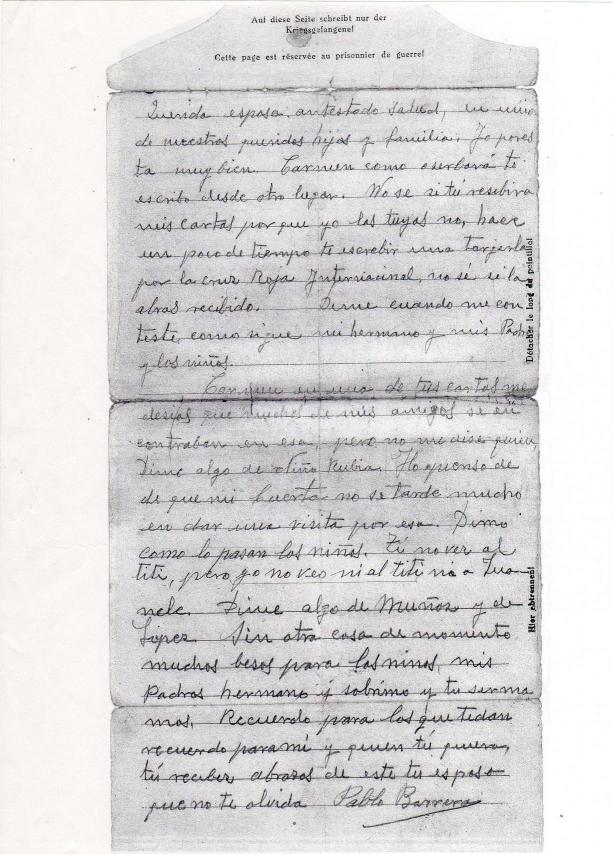 Auf diese Seite schreibt nur der
Kriegsgefangene!
Cette page est réservée au prisonnier de guerre!
Querida esposa antestado salud, en unio
de nuestros queridos hijos y familia. Yo por es
ta muy bien. Carmen como oserbará te
escribo desde otro lugar. No se si tú resibira
mis cartas por que yo las tuyas no, hace
un poco de tiempo te escrebir una targerta
por la cruz Roja Internacinal, no sé si la
abras recibido. Dime cuando me con
teste, como sigue mi hermano y mis Padr
y los niños.
Carmen en una de tus cartas me
desías que muchos de mis amigos se en
contraban en esa, pero no me dise quien,
Dime algo de Niño Rubia. Yo pienso de
de que mi suerta no se tarde mucho
en dar una visita por esa. Dimo
como lo pasan los niños. Tú no ver al
titi, pero yo no veo ni al titi ni a Jua
nele. Dime algo de Muñoz y de
López. Sin otra cosa de momento
muchos besos para los ninos, mis
Padros hermano y sobrino y tu serma
mos. Recuerdo para los que te dan
recuerdo para mi y quien tú quiera,
tú reciber abrazos de este tu esposo
que no te olvida Pablo Barrera
Détacher le long du pointillé!
Hier abtrennen!